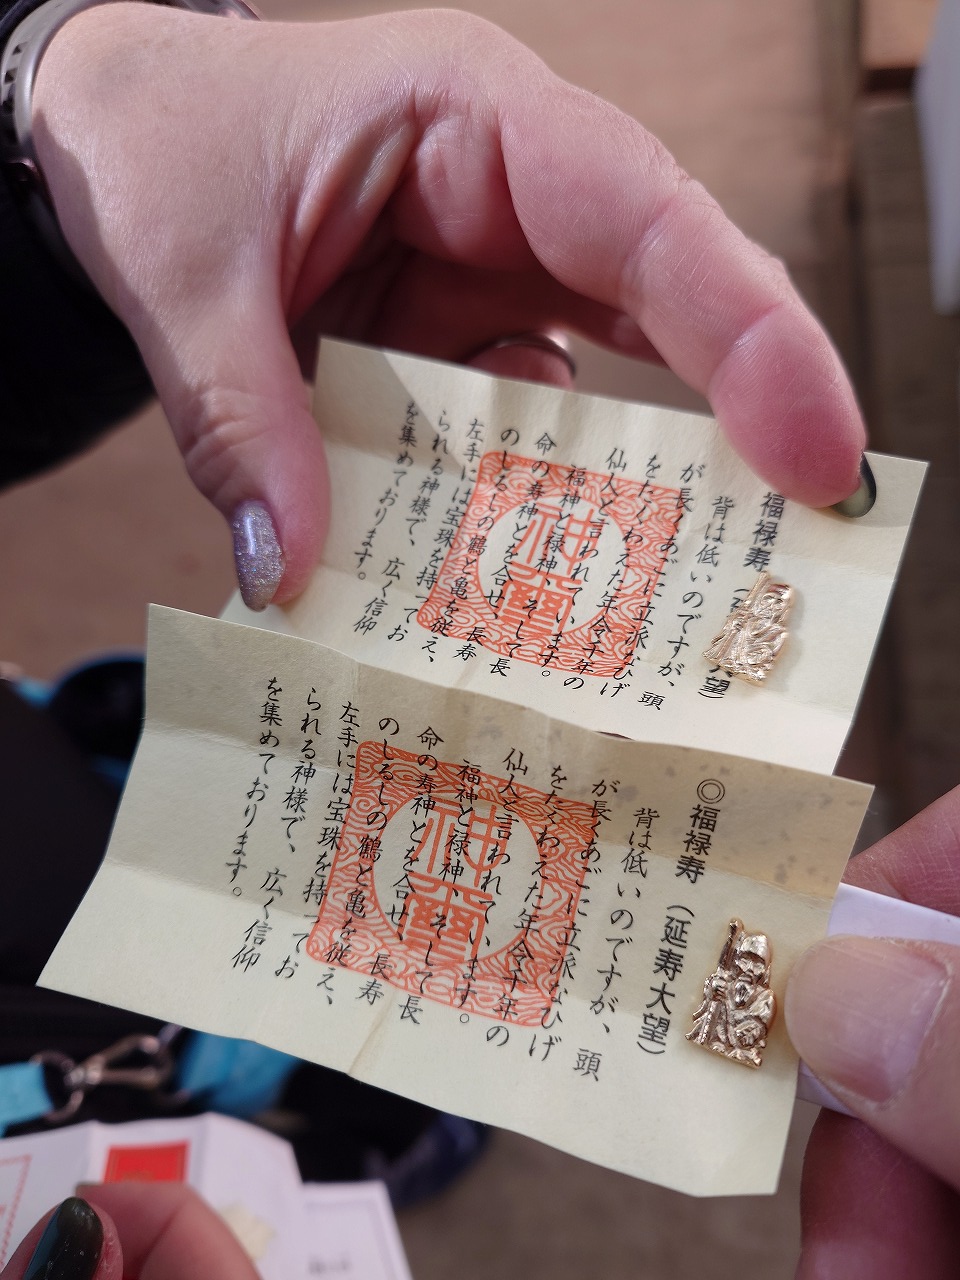 福禄寿（延 大望）
背は低いのですが、頭
が長くあごに立派なひげ
をたくわえた年令千年の
仙人と言われています。
福神と禄神、そして長
命の寿神とを合せ、長寿
のしるしの鶴と亀を従え、
左手には宝珠を持ってお
られる神様で、広く信仰
を集めております。
◎福禄寿（延寿大望）
背は低いのですが、頭
が長くあごに立派なひげ
をたくわえた年令千年の
仙人と言われています。
福神と禄神、そして長
命の寿神とを合せ、長寿
のしるしの鶴と亀を従え、
左手には宝珠を持ってお
られる神様で、広く信仰
を集めております。